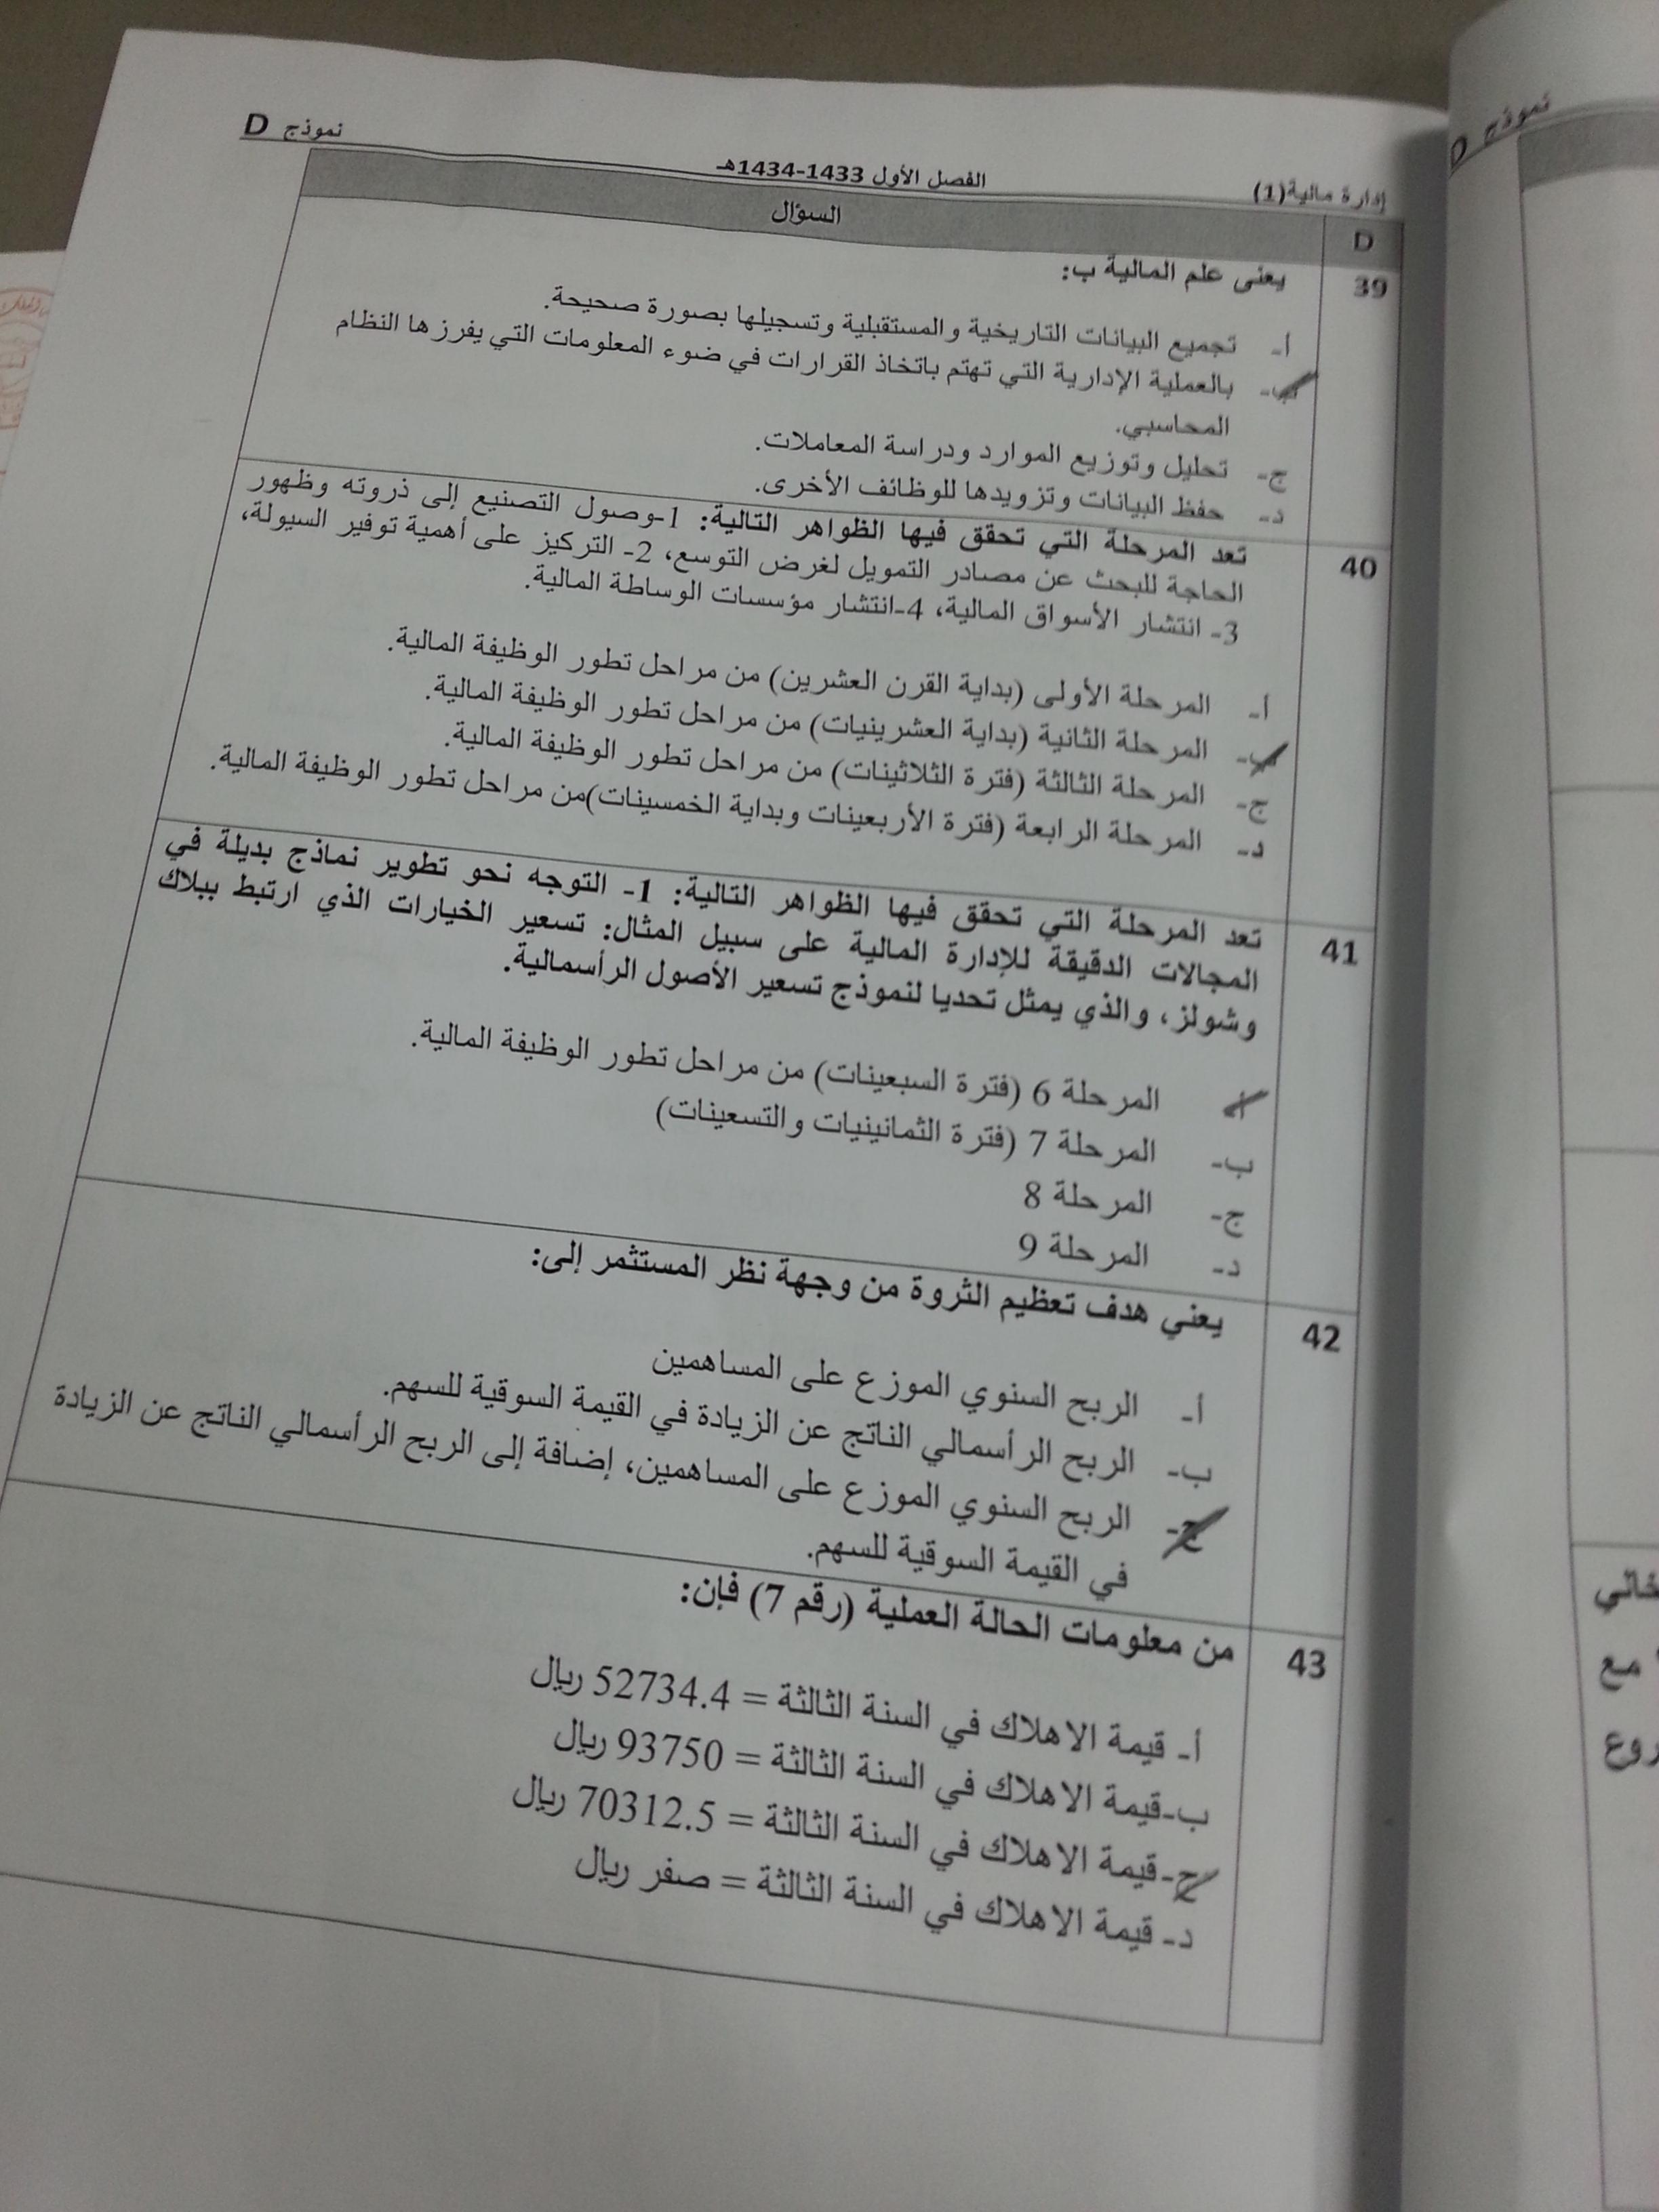 إدارة مالية(1) الفصل الأول 1433-1434هـ نموذج D
D السؤال
39 يعنى علم المالية ب:
أ- تجميع البيانات التاريخية والمستقبلية وتسجيلها بصورة صحيحة.
ب- بالعملية الإدارية التي تهتم باتخاذ القرارات في ضوء المعلومات التي يفرزها النظام
المحاسبي.
ج- تحليل وتوزيع الموارد ودراسة المعاملات.
د- حفظ البيانات وتزويدها للوظائف الأخرى.
40 تعد المرحلة التي تحقق فيها الظواهر التالية: 1-وصول التصنيع إلى ذروته وظهور
الحاجة للبحث عن مصادر التمويل لغرض التوسع، 2- التركيز على أهمية توفير السيولة،
3- انتشار الأسواق المالية، 4-انتشار مؤسسات الوساطة المالية.
أ- المرحلة الأولى (بداية القرن العشرين) من مراحل تطور الوظيفة المالية.
ب- المرحلة الثانية (بداية العشرينيات) من مراحل تطور الوظيفة المالية.
ج- المرحلة الثالثة (فترة الثلاثينات) من مراحل تطور الوظيفة المالية.
د- المرحلة الرابعة (فترة الأربعينات وبداية الخمسينات)من مراحل تطور الوظيفة المالية.
41 تعد المرحلة التي تحقق فيها الظواهر التالية: 1- التوجه نحو تطوير نماذج بديلة في
المجالات الدقيقة للإدارة المالية على سبيل المثال: تسعير الخيارات الذي ارتبط ببلاك
وشولز، والذي يمثل تحديا لنموذج تسعير الأصول الرأسمالية.
أ- المرحلة 6 (فترة السبعينات) من مراحل تطور الوظيفة المالية.
ب- المرحلة 7 (فترة الثمانينيات والتسعينات)
ج- المرحلة 8
د- المرحلة 9
42 يعني هدف تعظيم الثروة من وجهة نظر المستثمر إلى:
أ- الربح السنوي الموزع على المساهمين
ب- الربح الرأسمالي الناتج عن الزيادة في القيمة السوقية للسهم.
ج- الربح السنوي الموزع على المساهمين، إضافة إلى الربح الرأسمالي الناتج عن الزيادة
في القيمة السوقية للسهم.
43 من معلومات الحالة العملية (رقم 7) فإن:
أ- قيمة الاهلاك في السنة الثالثة = 52734.4 ريال
ب-قيمة الاهلاك في السنة الثالثة = 93750 ريال
ج-قيمة الاهلاك في السنة الثالثة = 70312.5 ريال
د- قيمة الاهلاك في السنة الثالثة = صفر ريال
نموذج D
مع